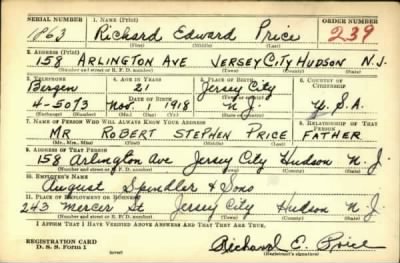 SERIAL NUMBER 1. NAME (Print) ORDER NUMBER
1863 Richard Edward Price 239
(First) (Middle) (Last)
2. ADDRESS (Print)
158 ARLINGTON AVE JERSEY CITY HUDSON N.J.
(Number and street or R. F. D. number) (Town) (County) (State)
3. TELEPHONE 4. AGE IN YEARS 5. PLACE OF BIRTH 6. COUNTRY OF CITIZENSHIP
Bergen 21 Jersey City
DATE OF BIRTH
4-5073 Nov. 1 1918 N.J. U.S.A.
(Exchange) (Number) (Mo.) (Day) (Yr.) (State or country)
7. NAME OF PERSON WHO WILL ALWAYS KNOW YOUR ADDRESS 8. RELATIONSHIP OF THAT PERSON
MR ROBERT STEPHEN PRICE FATHER
(Mr., Mrs., Miss) (First) (Middle) (Last)
9. ADDRESS OF THAT PERSON
158 Arlington Ave Jersey City Hudson N.J.
(Number and street or R. F. D. number) (Town) (County) (State)
10. EMPLOYER'S NAME
August Spindler & Sons
11. PLACE OF EMPLOYMENT OR BUSINESS
243 Mercer St Jersey City Hudson N.J.
(Number and street or R. F. D. number) (Town) (County) (State)
I AFFIRM THAT I HAVE VERIFIED ABOVE ANSWERS AND THAT THEY ARE TRUE.
REGISTRATION CARD
D. S. S. Form 1 (over) Richard E. Price
(Registrant's signature)